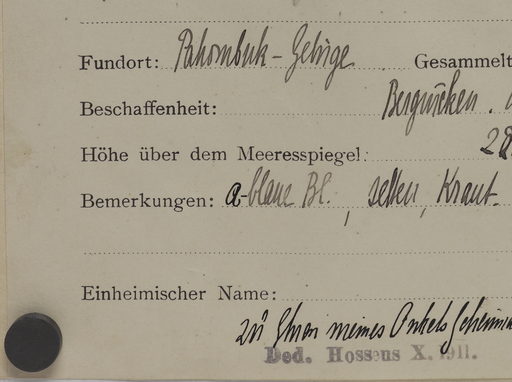 Fundort: Rahombuk-Gebirge Gesammelt
Beschaffenheit: Bergrücken.
Höhe über dem Meeresspiegel: 28
Bemerkungen: a-blaue Bl., selten, Kraut.
Einheimischer Name:
zu Ehren meines Onkels Geheim
Ded. Hosseus X. 1911.